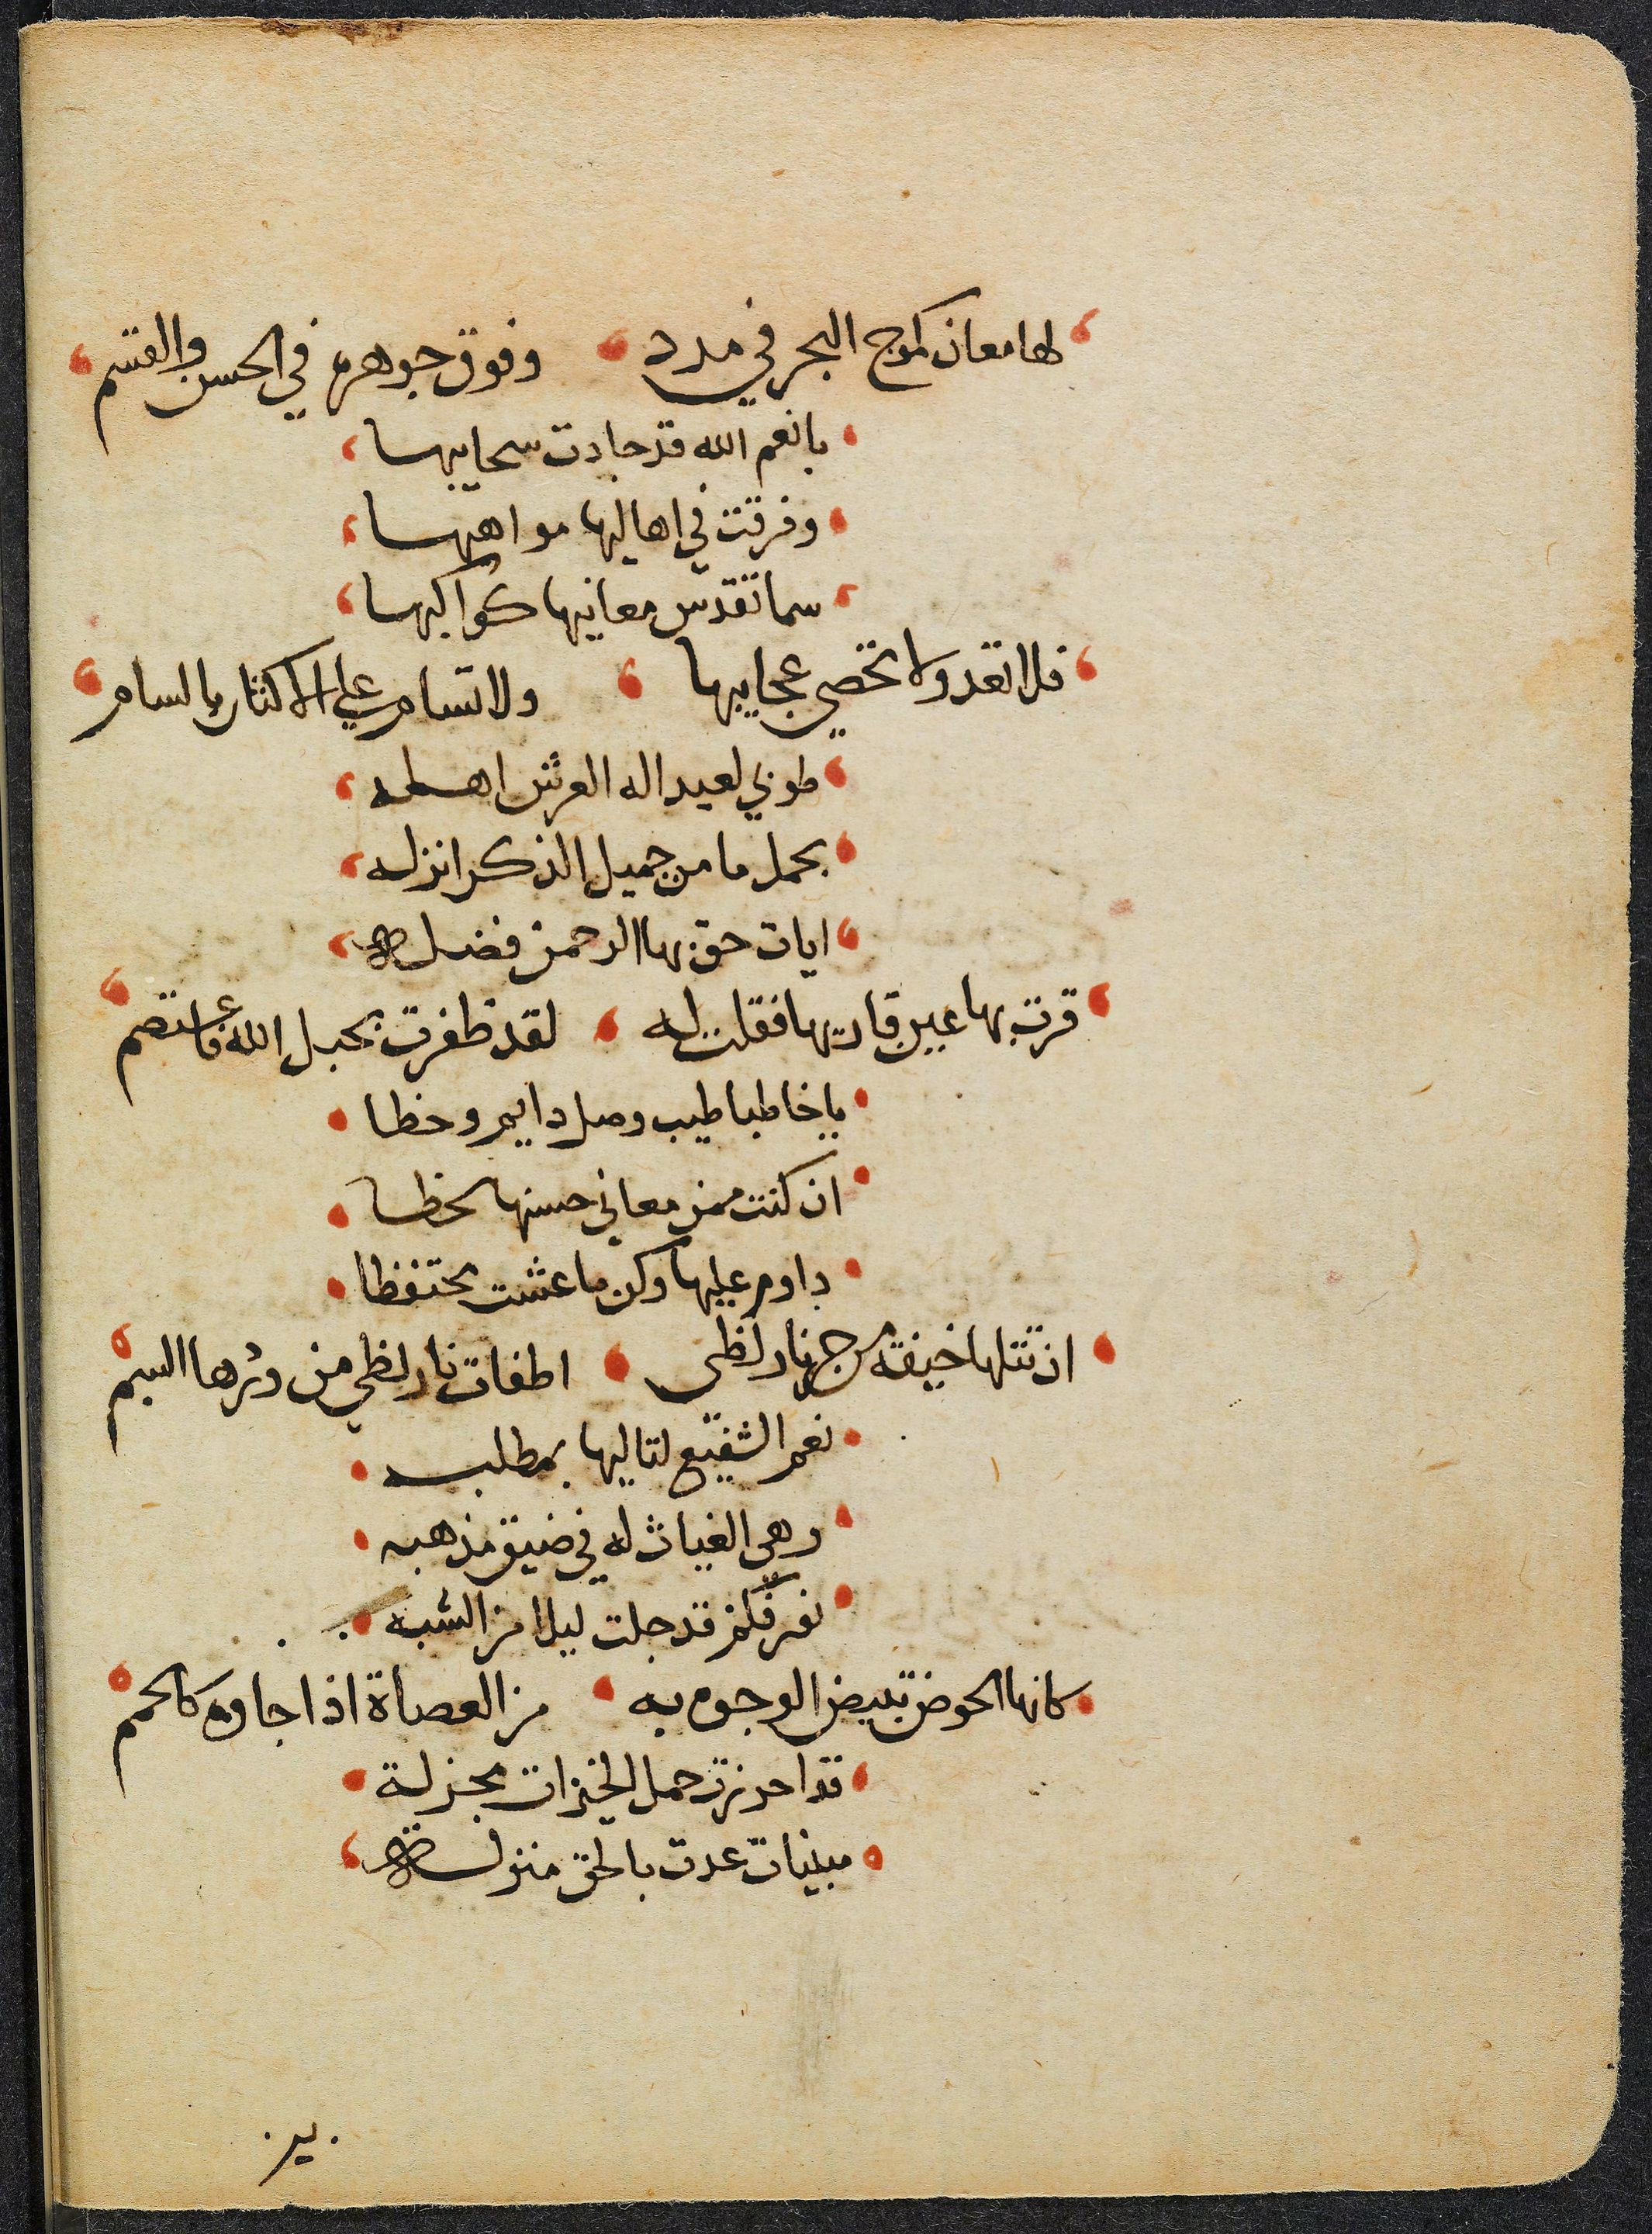 لها معان كموج البحر في مدد وفوق جوهره في الحسن والقيم
بانعم الله قد جادت سحايبها
وفرقت في اهاليها مواهبها
سما تقدس معانيها كواكبها
فلا تعد ولا تحصي عجايبها ولا تسام علي الاكثار بالسام
طوبي لعبد اله العرش اهله
بحمل ما من جميل الذكر انزله
ايات حق بها الرحمن فضله
قرت بها عين قاريها فقلت له لقد ظفرت بحبل الله فاعتصم
يا خاطبا طيب وصل دايم وحظا
ان كنت ممن معاني حسنها لحظا
داوم عليها وكن ما عشت محتفظا
ان تتلها خيفة من حر نار لظي اطفات نار لظي من وردها الشبم
نعم الشفيع لتاليها بمطلبه
وهي الغياث له في ضيق مذهبه
نور فكم قد جلت ليلا من الشبه
كانها الحوض تبيض الوجوه به من العصاة اذا جاوه كالحمم
قد احرزت جمل الخيرات مجزلة
مبينات عدت بالحق منزلة